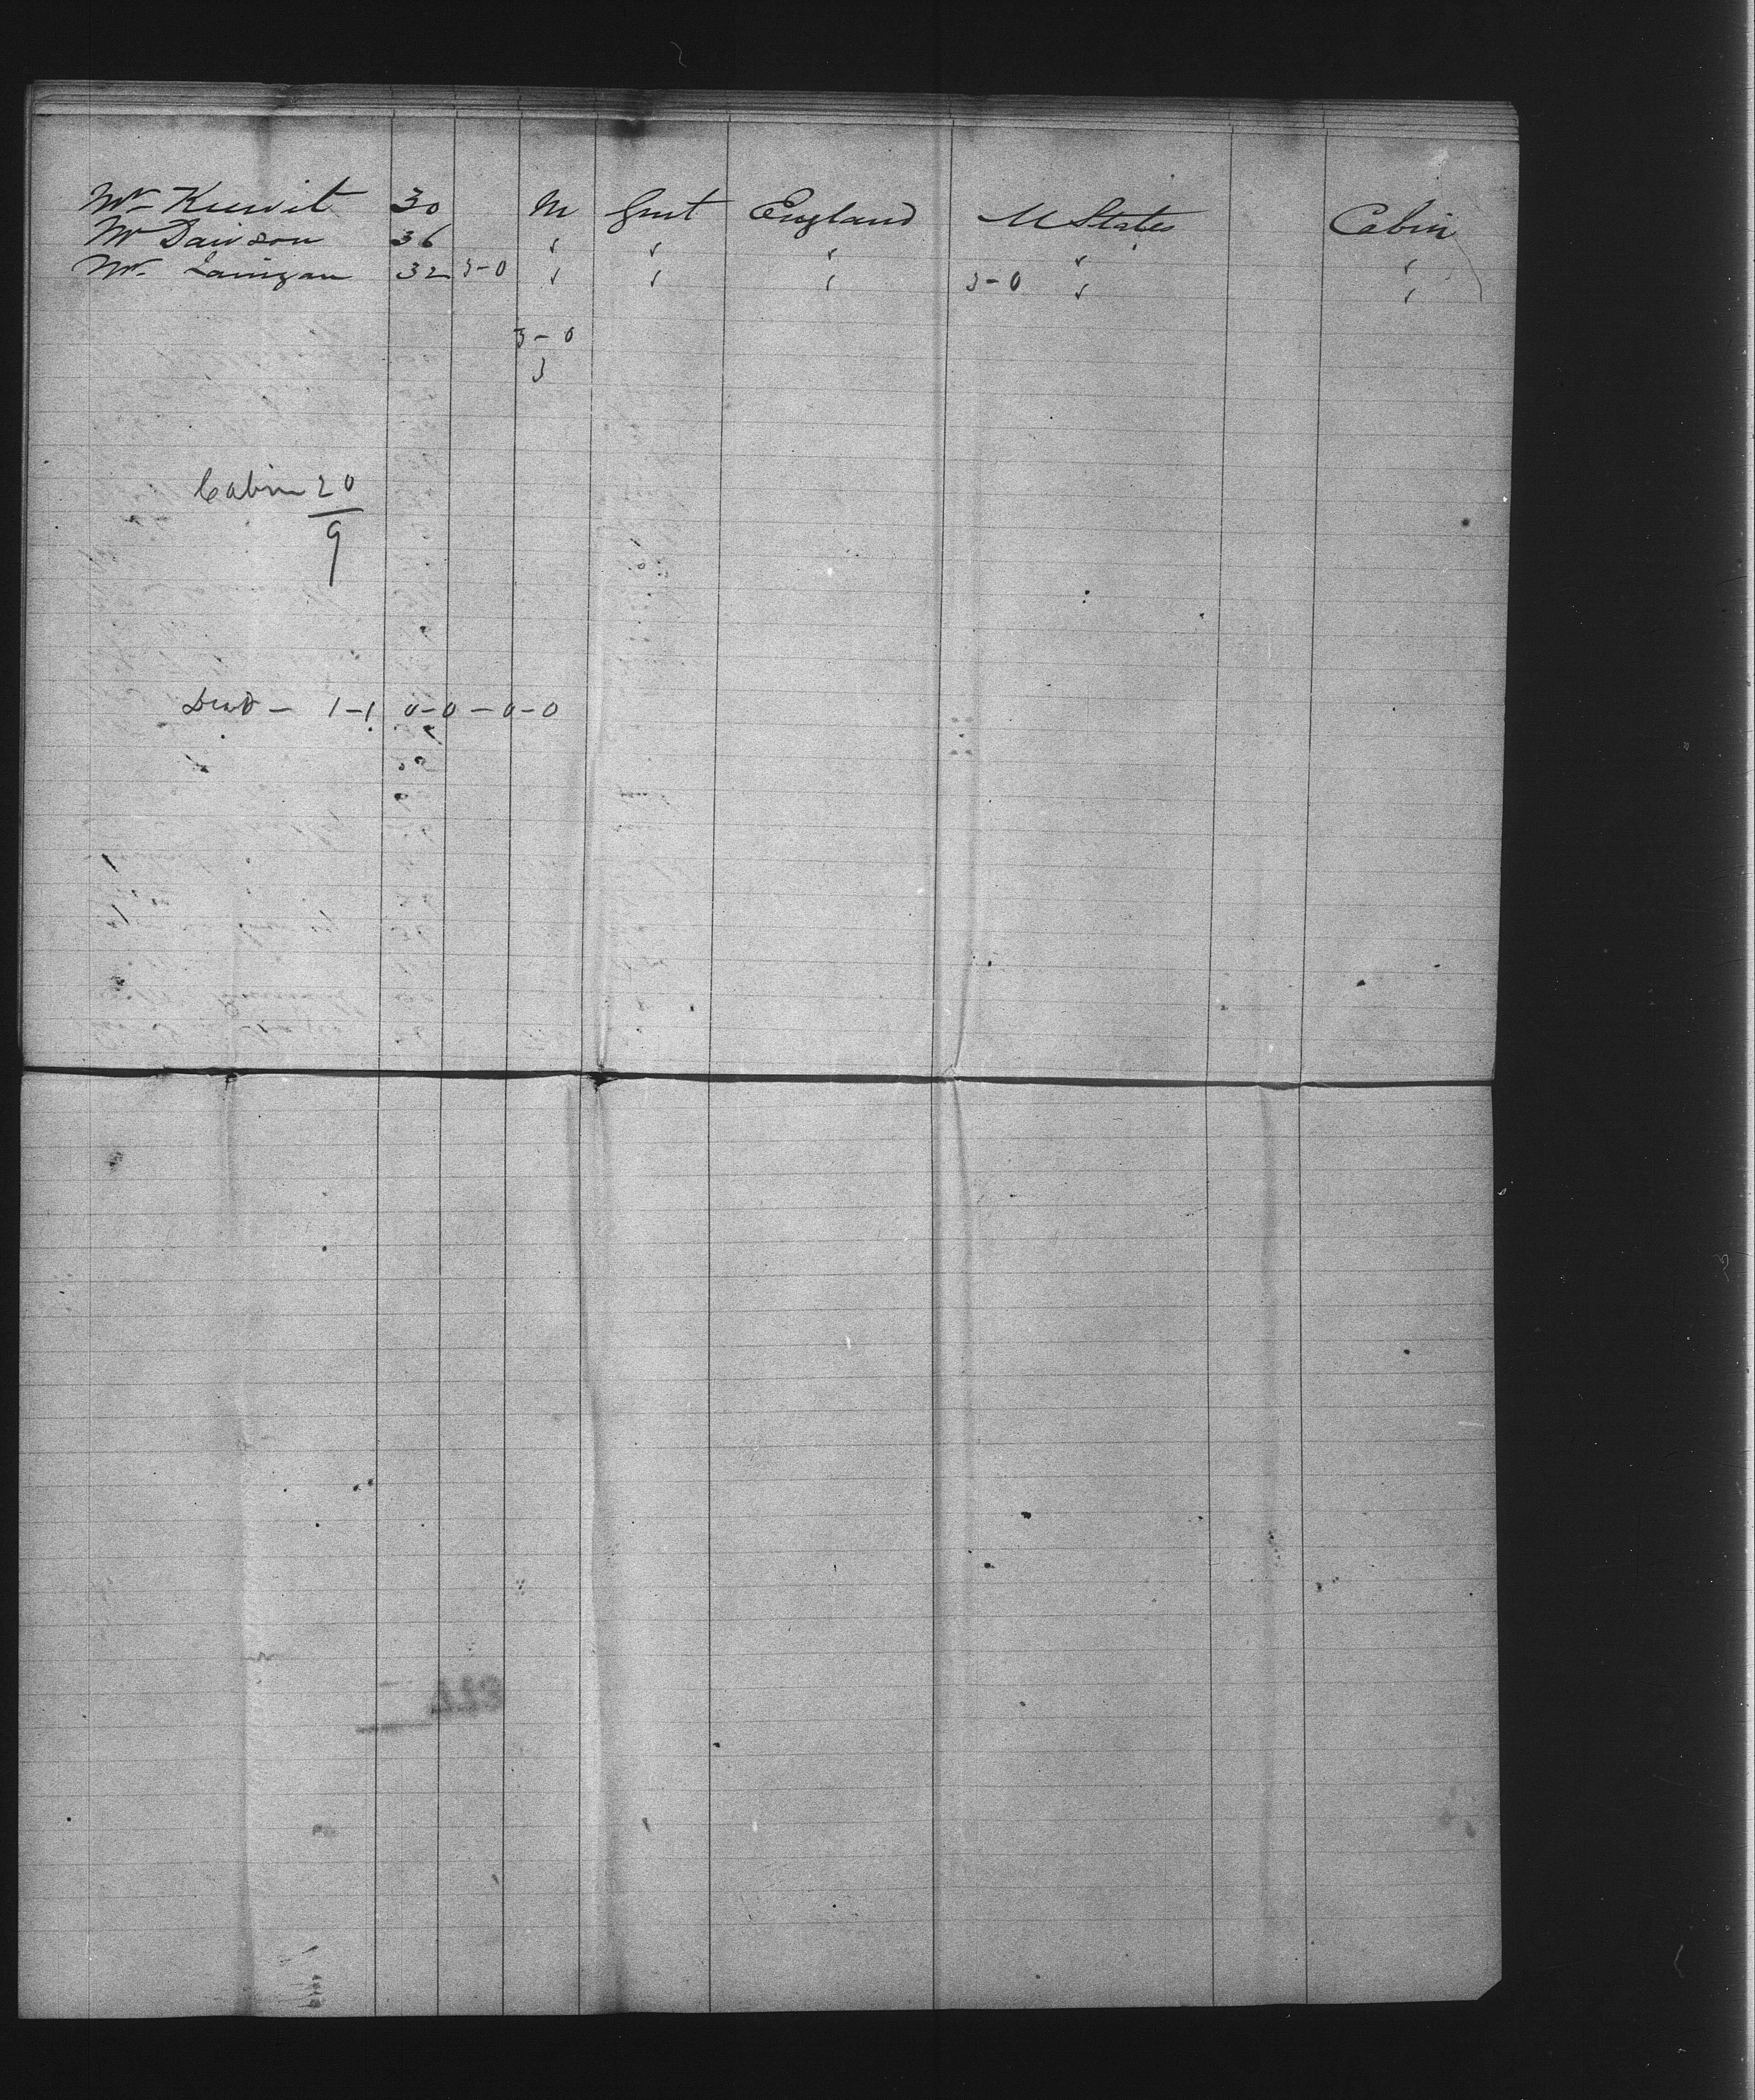 Mr Kuwit 30 M Gent England U States Cabin
Mr Dawson 36 " " " " "
Mr Lanigan 32 3-0 " " " 3-0 " "
3-0
3
Cabin 20
9
Dead - 1-1 0-0-0-0